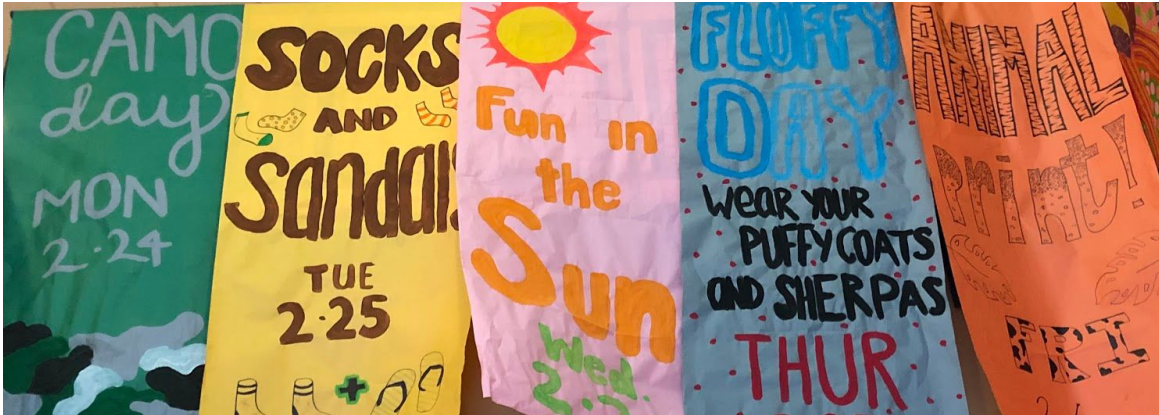 CAMO
day
MON
2.24
SOCKS
AND
Sandals
TUE
2.25
Fun in
the
Sun
Wed.
FLUFFY
DAY
WEAR YOUR
PUFFY COATS
AND SHERPAS
THUR
ANIMAL
print!
FRI